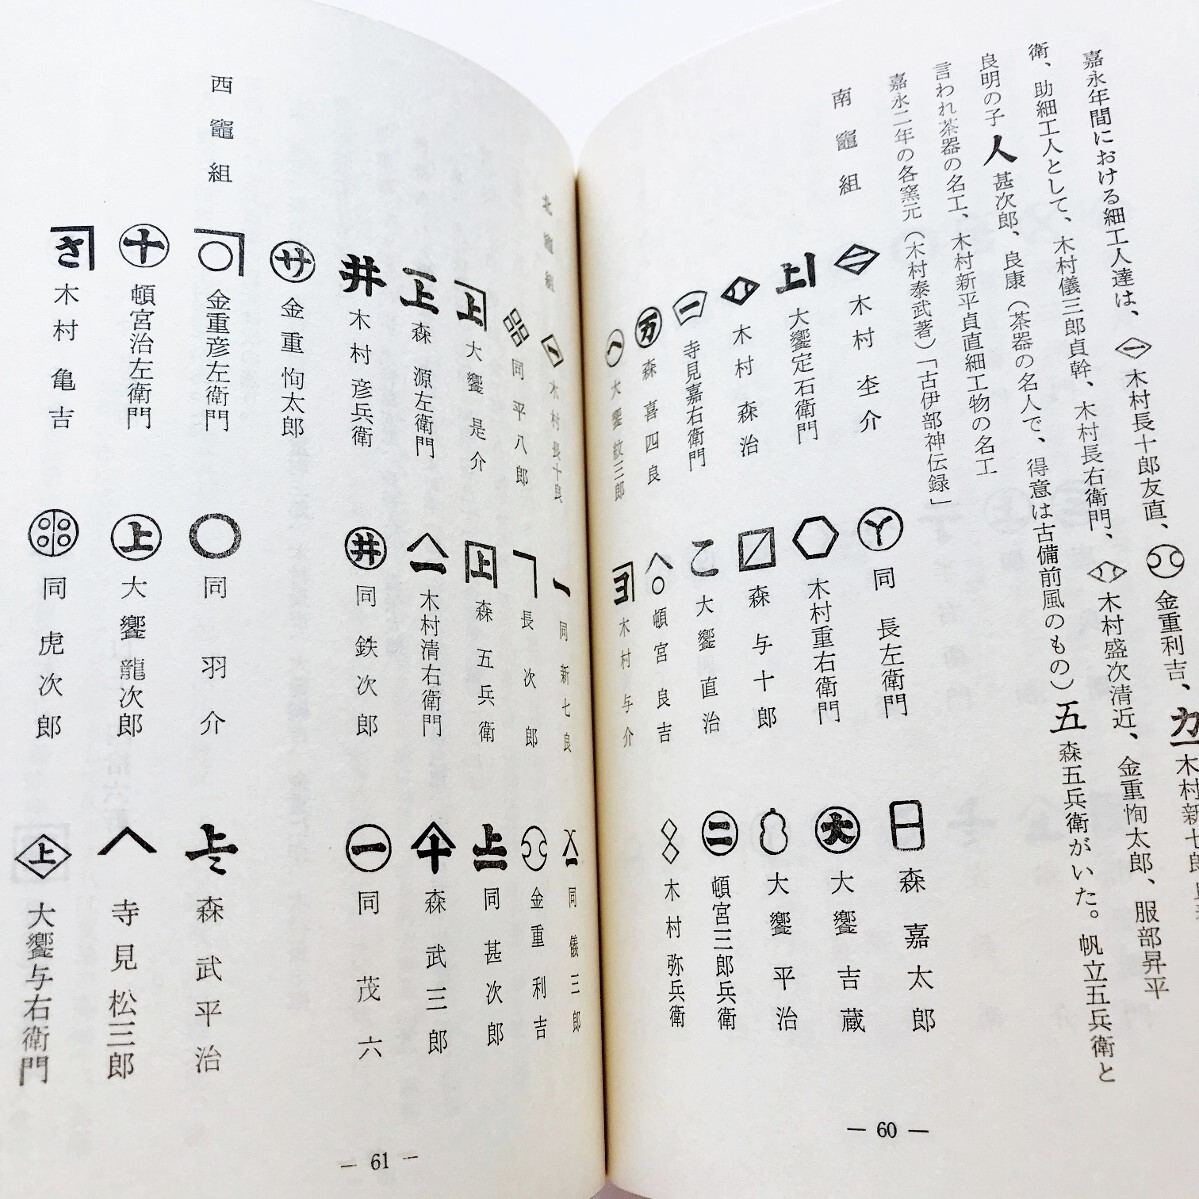 嘉永年間における細工人達は、木村長十郎友直、金重利吉、カ一木村新七郎
衛、助細工人として、木村儀三郎貞幹、木村長右衛門、木村盛次清近、金重恂太郎、服部昇平
良明の子人甚次郎、良康(茶器の名人で、得意は古備前風のもの)五森五兵衛がいた。帆立五兵衛と
言われ茶器の名工、木村新平貞直細工物の名工
嘉永二年の各窯元(木村泰武著)「古伊部神伝録」
南竈組
木村杢介 同長左衛門 日森嘉太郎
上大饗定右衛門 木村重右衛門 大大饗吉蔵
木村森治 森与十郎 大饗平治
一寺見嘉右衛門 こ大饗直治 二頓宮三郎兵衛
万森喜四良 頓宮良吉 木村弥兵衛
へ大饗紋三郎 ヨ木村与介
— 60 —
北竈組
一木村長十良 一同新七良 同儀三郎
同平八郎 長次郎 金重利吉
上大饗是介 上森五兵衛 上二同甚次郎
上森源左衛門 木村清右衛門 森武三郎
井木村彦兵衛 井同鉄次郎 一同茂六
西竈組
サ金重恂太郎
金重彦左衛門 同羽介 上森武平治
十頓宮治左衛門 上大饗龍次郎 寺見松三郎
さ木村亀吉 同虎次郎 上大饗与右衛門
— 61 —